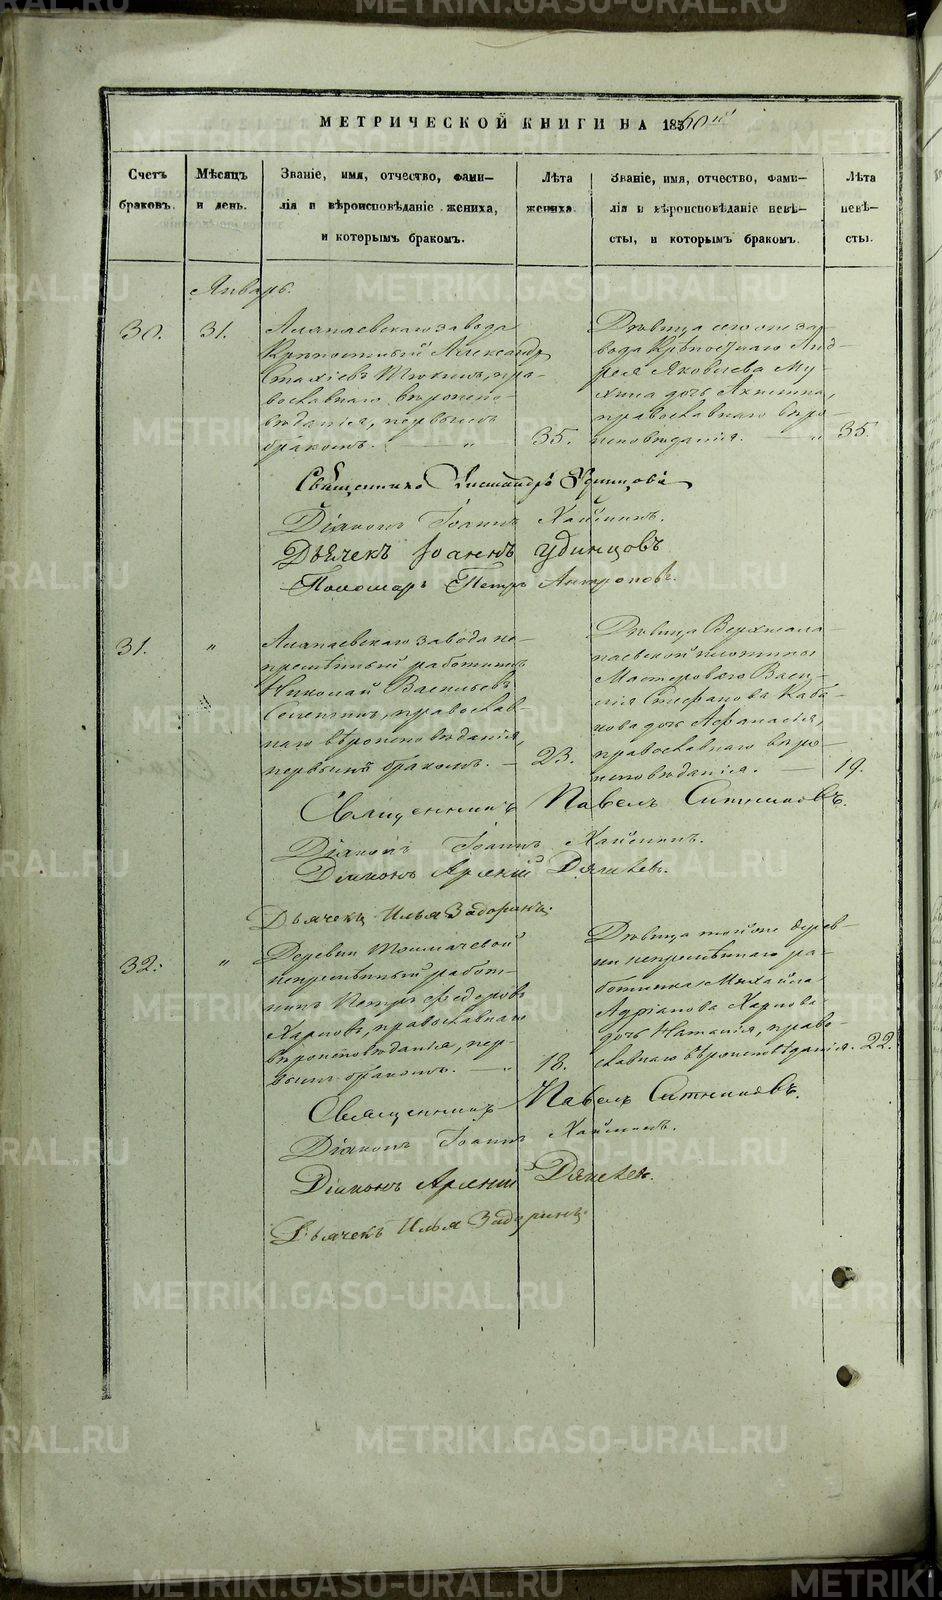 МЕТРИЧЕСКОЙ КНИГИ НА 1860й
Счетъ браковъ.
Мѣсяцъ и день.
Званіе, имя, отчество, фами-
лія и вѣроисповѣданіе жениха,
и которымъ бракомъ.
Лѣта жениха.
Званіе, имя, отчество, фами-
лія и вѣроисповѣданіе невѣ-
сты, и которымъ бракомъ.
Лѣта невѣ-
сты.
Январь.
30. 31.
Алапаевскаго завода
Крѣпостный Александръ
Стахіевъ пра-
вославнаго вѣроиспо-
вѣданія, первымъ
бракомъ. „ 35.
Дѣвица сего же за-
вода Крѣпостнаго Анд-
рея Яковлева Му-
хина дочь
православнаго вѣро-
исповѣданія. — „ 35.
Священникъ Удинцовъ
Діаконъ Іоаннъ
Дьячекъ Іоаннъ Удинцовъ
Пономарь Петръ Антроповъ.
31. „
Алапаевскаго завода не-
премѣнный работникъ
Николай Васильевъ
православ-
наго вѣроисповѣданія,
первымъ бракомъ. — 23.
Дѣвица Верхнеала-
паевской плотины
Мастероваго Васи-
лія Стефанова Каба-
кова дочь Афанасія,
православнаго вѣро-
исповѣданія. — 19.
Священникъ Павелъ Ситниковъ.
Діаконъ Іоаннъ
Діаконъ Арсеній
Дьячекъ Илья Задоринъ.
32. „
Деревни Толмачевой
непремѣнный работ-
никъ Петръ Федоровъ
Харловъ, православнаго
вѣроисповѣданія, пер-
вымъ бракомъ. — „ 18.
Дѣвица той же дерев-
ни непремѣннаго ра-
ботника Михайла
Адріанова Харлова
дочь Наталія, право-
славнаго вѣроисповѣданія. 22.
Священникъ Павелъ Ситниковъ.
Діаконъ Іоаннъ
Діаконъ Арсеній
Дьячекъ Илья Задоринъ.
METRIKI.GASO-URAL.RU